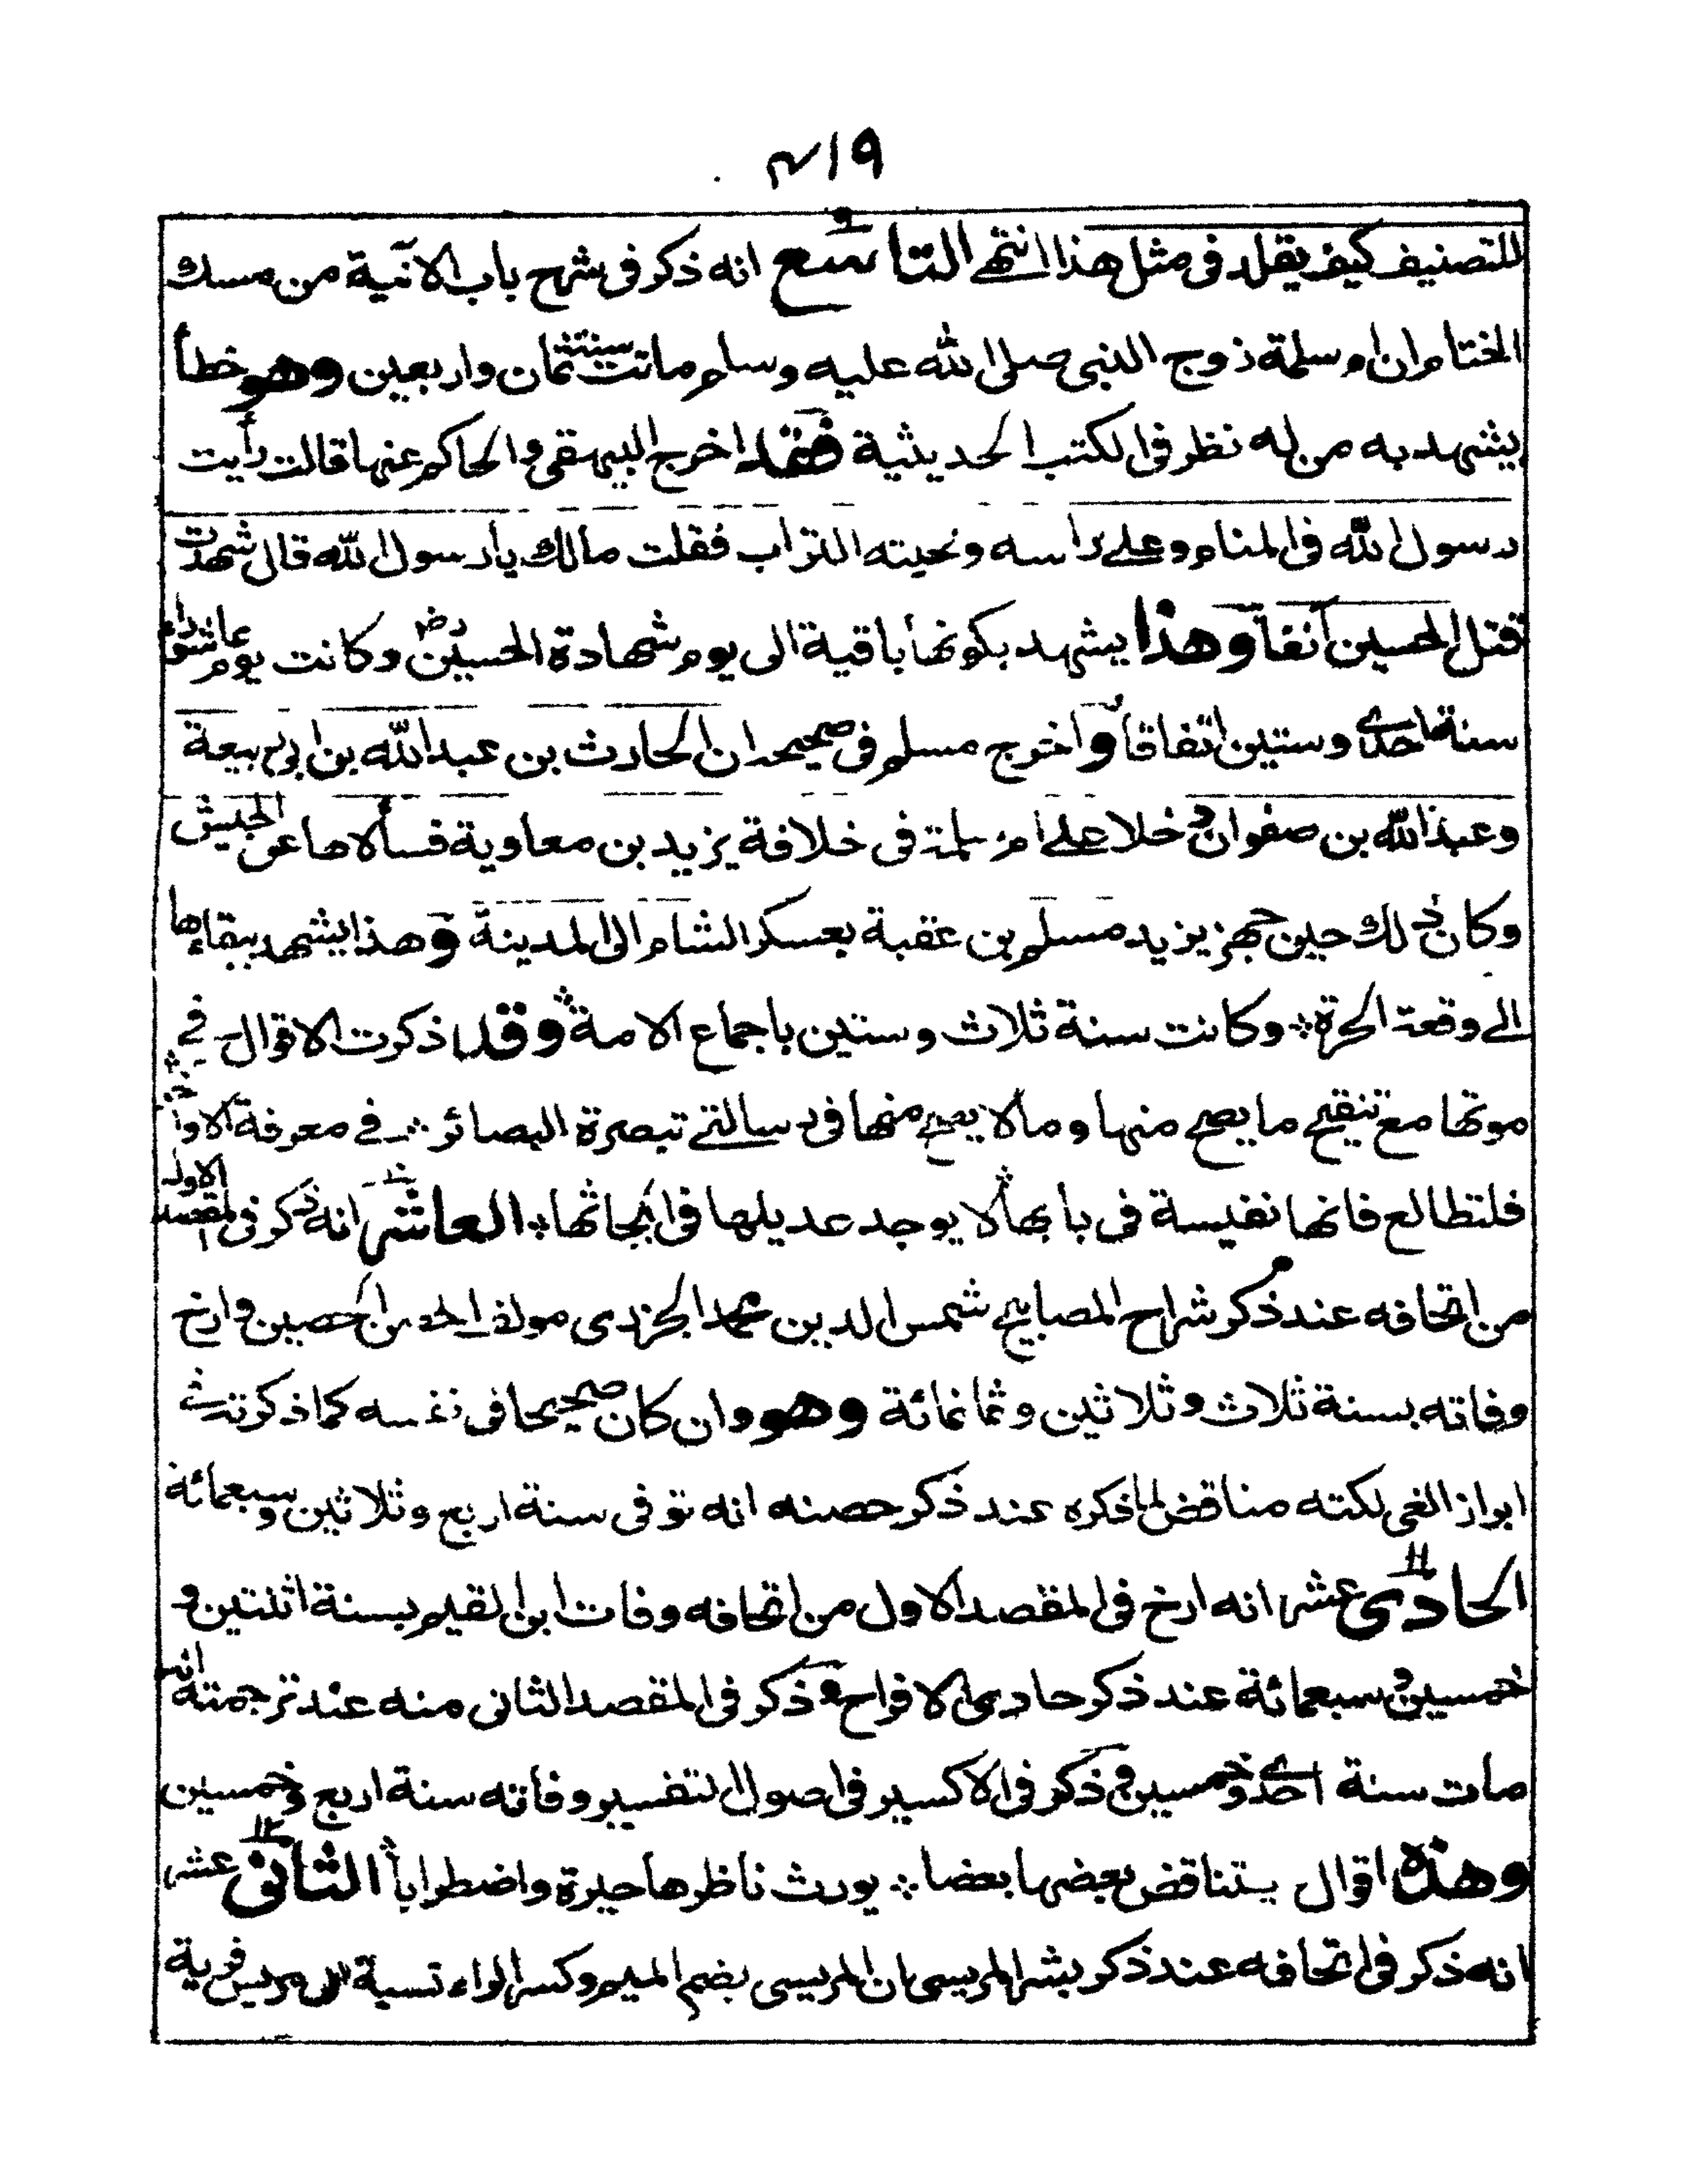 ٤١٩
للتصنيف كيف يقلد فى مثل هذا انتهى التاسع انه ذكر فى شرح باب الآنية من مسك
الختام ان ام سلمة زوج النبى صلى الله عليه وسلم ماتت سنة ثمان واربعين وهو خطأ
يشهد به من له نظر فى الكتب الحديثية فقد اخرج البيهقى والحاكم عنها قالت رأيت
رسول الله فى المنام وعلى راسه ولحيته التراب فقلت مالك يا رسول الله قال شهدت
قتل الحسين آنفا وهذا يشهد بكونها باقية الى يوم شهادة الحسين رض وكانت يوم عاشوراء
سنة احدى وستين اتفاقا واخرج مسلم فى صحيحه ان الحارث بن عبد الله بن ابى ربيعة
وعبد الله بن صفوان دخلا على ام سلمة فى خلافة يزيد بن معاوية فسألاها عن الجيش
وكان ذلك حين جهز يزيد مسلم بن عقبة بعسكر الشام الى المدينة وهذا يشهد ببقاءها
الى وقعة الحرة وكانت سنة ثلاث وستين باجماع الامة وقد ذكرت الاقوال فى
موتها مع تنقيح ما يصح منها وما لا يصح منها فى رسالتى تبصرة البصائر فى معرفة الاواخر
فلتطالع فانها نفيسة فى بابها لا يوجد عديلها فى ابحاثها العاشر انه ذكر فى المقصد الاول
من اتحافه عند ذكر شراح المصابيح شمس الدين محمد الجزرى مولف الحصن الحصين وارخ
وفاته بسنة ثلاث وثلاثين وثمانمائة وهو وان كان صحيحا فى نفسه كما ذكرته فى
ابراز الغى لكنه مناقض لما ذكره عند ذكر حصنه انه توفى سنة اربع وثلاثين وسبعمائة
الحادى ١١ عشر انه ارخ فى المقصد الاول من اتحافه وفات ابن القيم بسنة اثنتين و
خمسين وسبعمائة عند ذكر حادى الافراح وذكر فى المقصد الثانى منه عند ترجمته انه
مات سنة احدى وخمسين وذكر فى الاكسير فى اصول التفسير وفاته سنة اربع وخمسين
وهذه اقوال يتناقض بعضها بعضا يورث ناظرها حيرة واضطرابا الثانى ١٢ عشر
انه ذكر فى اتحافه عند ذكر بشر المريسى ان المريسى بضم الميم وكسر الراء نسبة الى مريس قرية